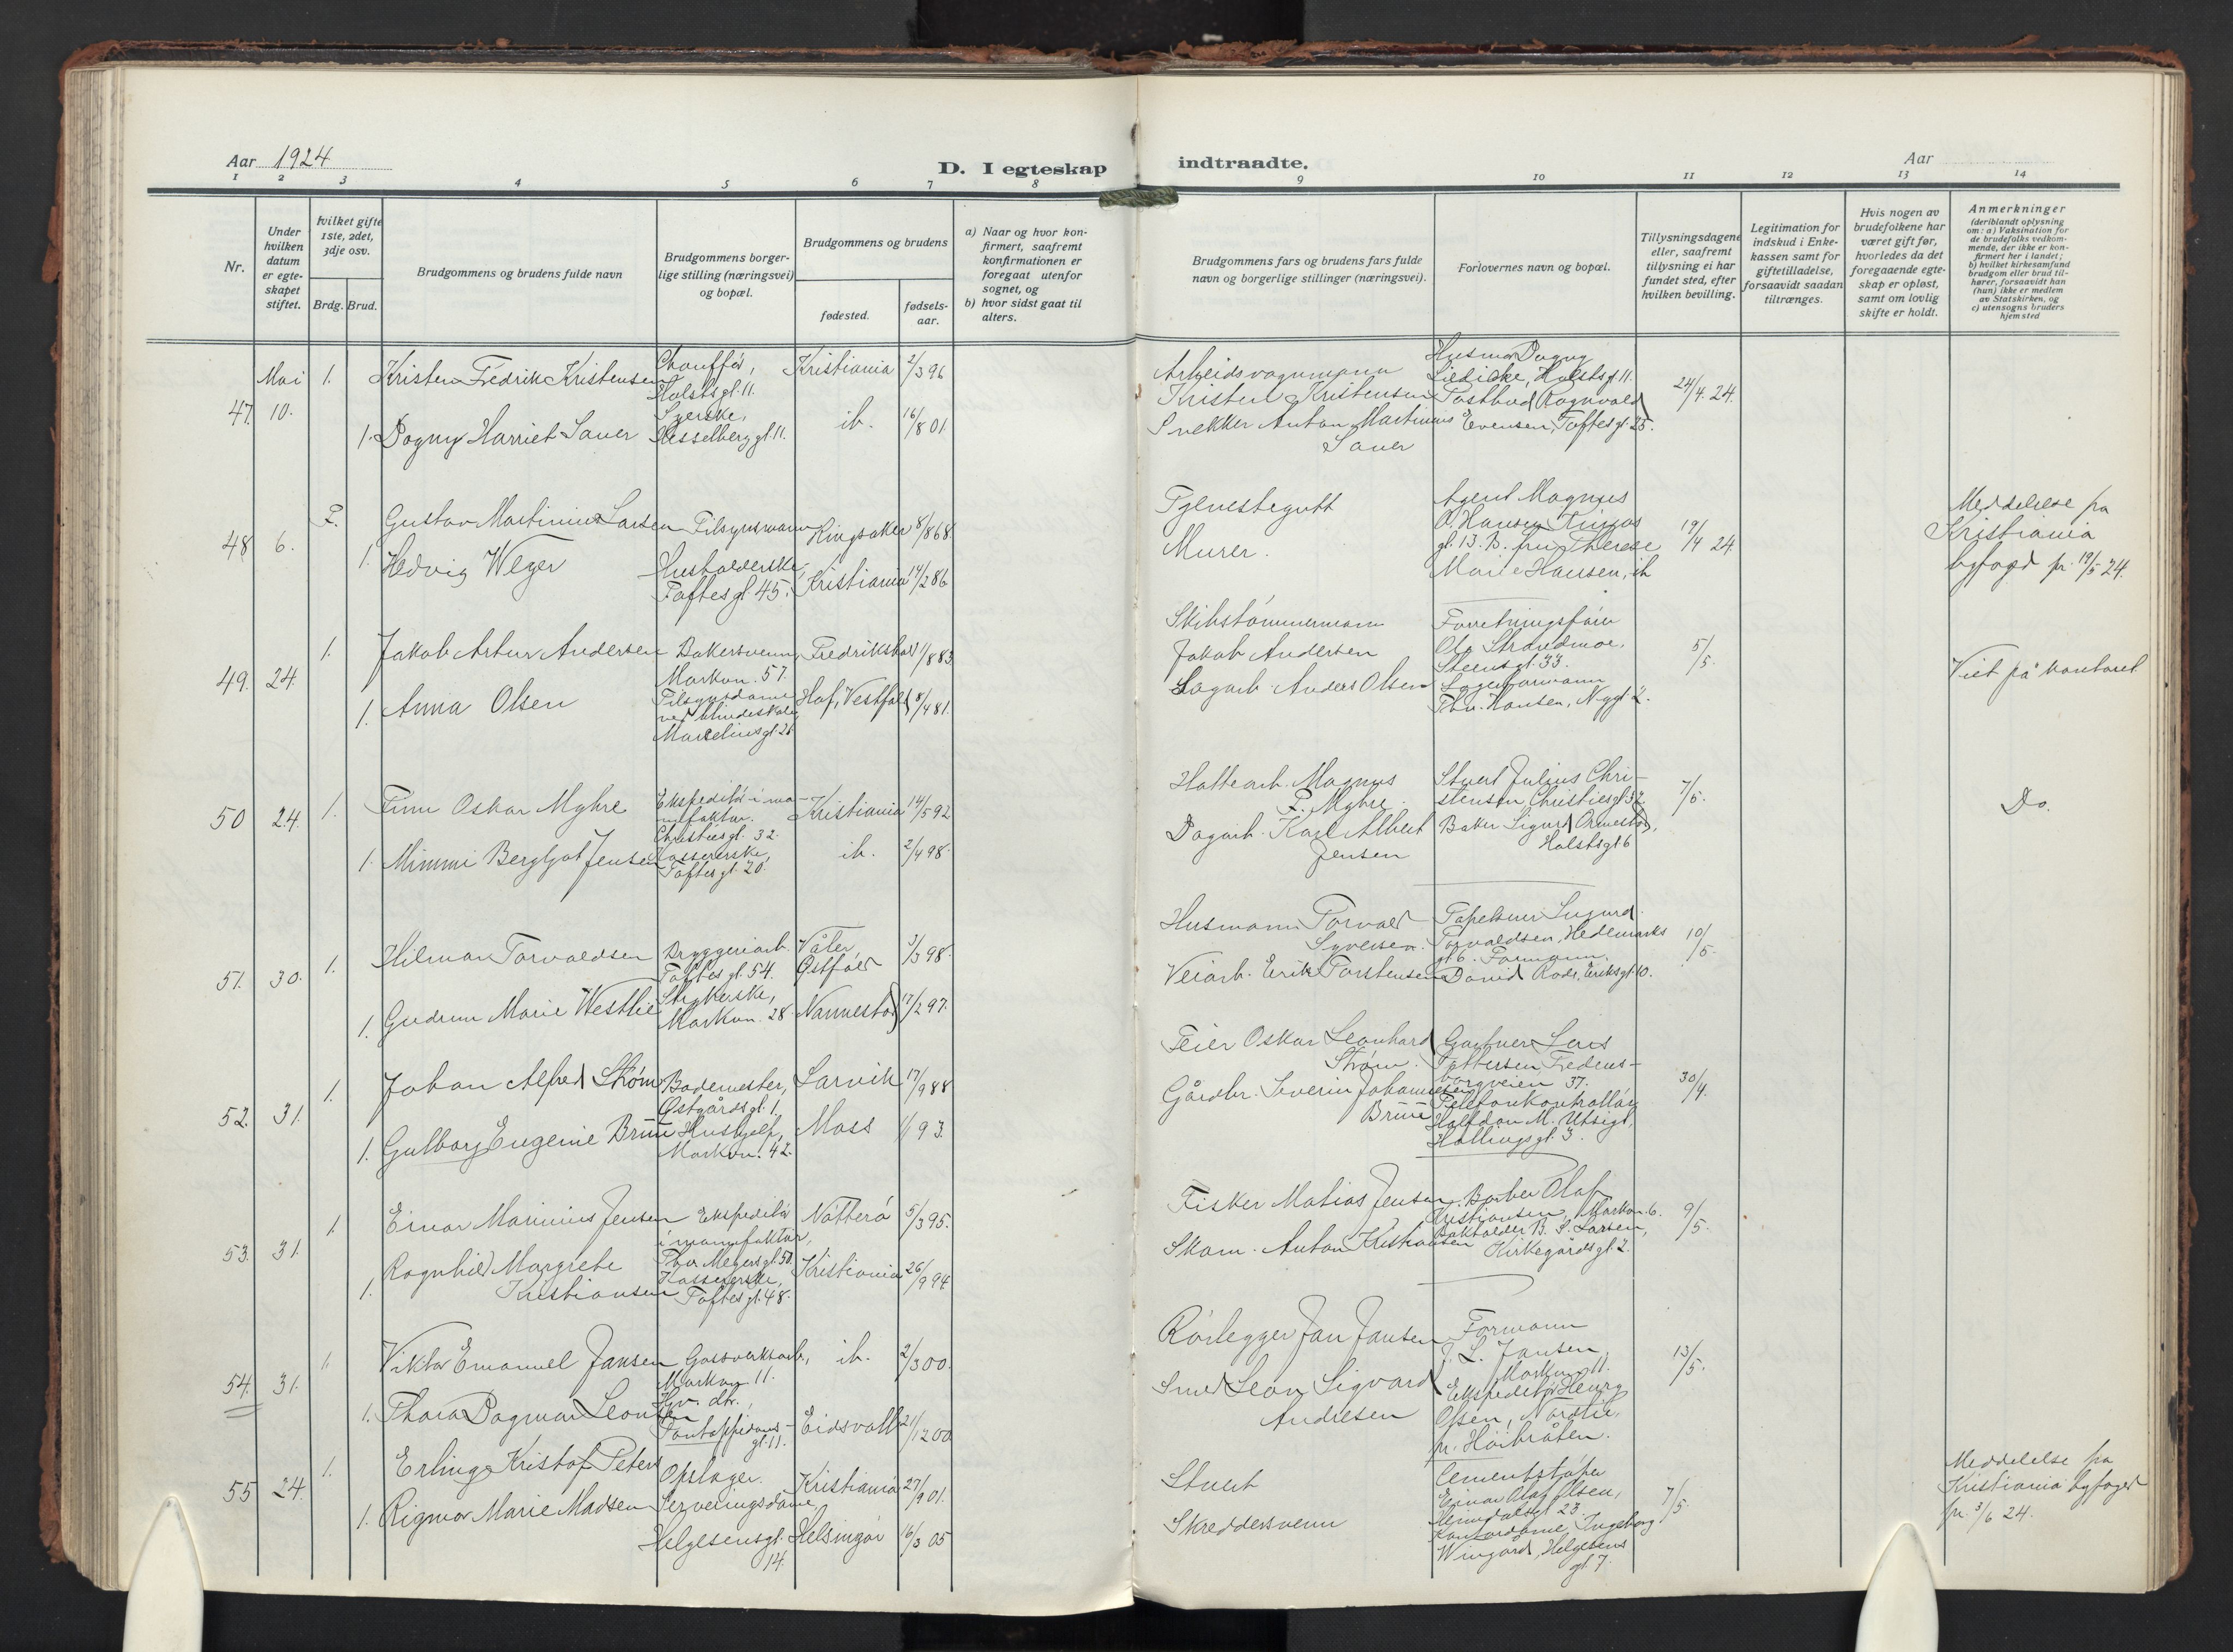 Aar 1924
D. I egteskap indtraadte.
Aar
1 2 3 4 5 6 7 8 9 10 11 12 13 14
Nr.
Under hvilken datum er egteskapet stiftet.
hvilket gifte 1ste, 2det, 3dje osv.
Brdg. Brud.
Brudgommens og brudens fulde navn
Brudgommens borgerlige stilling (næringsvei) og bopæl.
Brudgommens og brudens
fødested.
fødselsaar.
a) Naar og hvor konfirmert, saafremt konfirmationen er foregaat utenfor sognet, og
b) hvor sidst gaat til alters.
Brudgommens fars og brudens fars fulde navn og borgerlige stillinger (næringsvei).
Forlovernes navn og bopæl.
Tillysningsdagene eller, saafremt tillysning ei har fundet sted, efter hvilken bevilling.
Legitimation for indskud i Enkekassen samt for giftetilladelse, forsaavidt saadan tiltrænges.
Hvis nogen av brudefolkene har været gift før, hvorledes da det foregaaende egteskap er opløst, samt om lovlig skifte er holdt.
Anmerkninger
(deriblandt oplysning om: a) Vaksination for de brudefolks vedkommende, der ikke er konfirmert her i landet; b) hvilket kirkesamfund brudgom eller brud tilhører, forsaavidt han (hun) ikke er medlem av Statskirken, og c) utensogns bruders hjemsted
47. Mai 10.
1. Kristen Fredrik Kristensen
Chauffør, Holstsgt. 11.
Kristiania 2/3 96
1. Dagny Harriet Sauer
Syerske, Hesselberggt. 11.
ib. 16/8 01.
Arbeidsvognmann Kristen Kristensen
Snekker Anton Martinius Sauer
Husmor Dagny Liedicke, Holstsgt. 11.
Postbud Ragnvald Evensen, Toftesgt. 25.
24/4. 24.
48 6.
F. Gustav Martinius Larsen
Tilsynsmann
Ringsaker 8/8 68
1. Hedvig Weger
Husholderske, Toftesgt. 45.
Kristiania 14/2 86
Tjenestegutt
Murer.
Agent Magnus O. Hansen
gt. 13. B. fru Therese Marie Hansen, ib
19/4 24
Meddelelse fra Kristiania byfogd pr. 19/5 24.
49. 24
1. Jakob Artur Andersen
Bakersvenn, Markvn. 57.
Fredrikshal 1/8 83
1. Anna Olsen
Tilsynsdame ved blindeskolen, Marselinsgt 28
Hof, Vestfold 8/4 81.
Skibstømmermann Jakob Andersen
Sagarb. Anders Olsen
Forretningsfører Ole Strandmoe, Steensgt. 33.
Lagerformann Thv. Hansen, Nygt. 2.
5/5.
Viet på kontoret
50 24.
1. Finn Oskar Myhre
Ekspeditør i manufaktur. Christiesgt. 32.
Kristiania 14/5 92
1. Mimmi Bergljot Jensen
Kassererske, Toftesgt. 20.
ib. 2/4 98.
Hattearb. Magnus F. Myhre.
Dagarb. Karl Albert Jensen
Stuert Julius Christensen, Christiesgt 32
Baker Sigurd Ormestad, Holstsgt 6
7/5.
Do.
51. 30.
1. Hilmar Torvaldsen
Bryggeriarb. Toftesgt. 54.
Våler, Østfold 3/3 98.
1. Gudrun Marie Westlie
Strykerske, Markvn. 28.
Nannestad 17/2 97.
Husmann Torvald Syversen.
Veiarb. Erik Torstensen
Tapetserer Sigurd Torvaldsen, Hedemarksgt. 6.
Formann David Rode, Eriksgt. 10.
10/5.
52. 31.
1. Johan Alfred Strøm
Bademester, Østgårdsgt. 1.
Larvik 17/9 88
1. Gulborg Eugenie Bruu
Hushjelp, Markvn. 42.
Moss 1/1 93.
Feier Oskar Leonhard Strøm.
Gårdbr. Severin Johannesen Bruu
Gartner Lars Pettersen, Fredensborgveien 37.
Telefonkontrollør Halfdan M. Utsigt, Hallingsgt. 3.
30/4.
53. 31.
1. Einar Marinius Jensen
Ekspeditør i manufaktur, Thv. Meyersgt. 50.
Nøtterø 5/3 95.
1. Ragnhild Margrete Kristiansen
Kassererske, Toftesgt. 48.
Kristiania 26/9 94
Fisker Matias Jensen
Skom. Anton Kristiansen
Barber Olaf Kristiansen, Markvn. 6.
Bokholder B. S. Larsen, Kirkegårdsgt. 2.
9/5.
54. 31.
1. Viktor Emanuel Jansen
Gassverksarb., Markvn. 11.
ib. 2/3 00.
1. Thora Dagmar Leonsen
Hjv. dtr.,
gt. 11.
Eidsvoll 21/12 00
Rørlegger Jan Jansen
Smed Leon Sigvard Andresen
Formann J. L. Jansen, Markvn 11.
Ekspeditør Henry Olsen, Nordli, pr. Høibråten.
13/5.
55 24.
1. Erling Kristof Peters
Opslager.
Kristiania 27/9 01.
1. Rigmor Marie Madsen
Serveringsdame, Helgesensgt. 14.
Helsingør 16/3 05
Stuert
Skreddersvenn
Cementstøper Einar Olaf Olsen,
Heimdalsgt 23.
Kontordame Ingeborg Wingård, Helgesens gt. 7.
7/5.
Meddelelse fra Kristiania byfoged pr. 3/6 24.